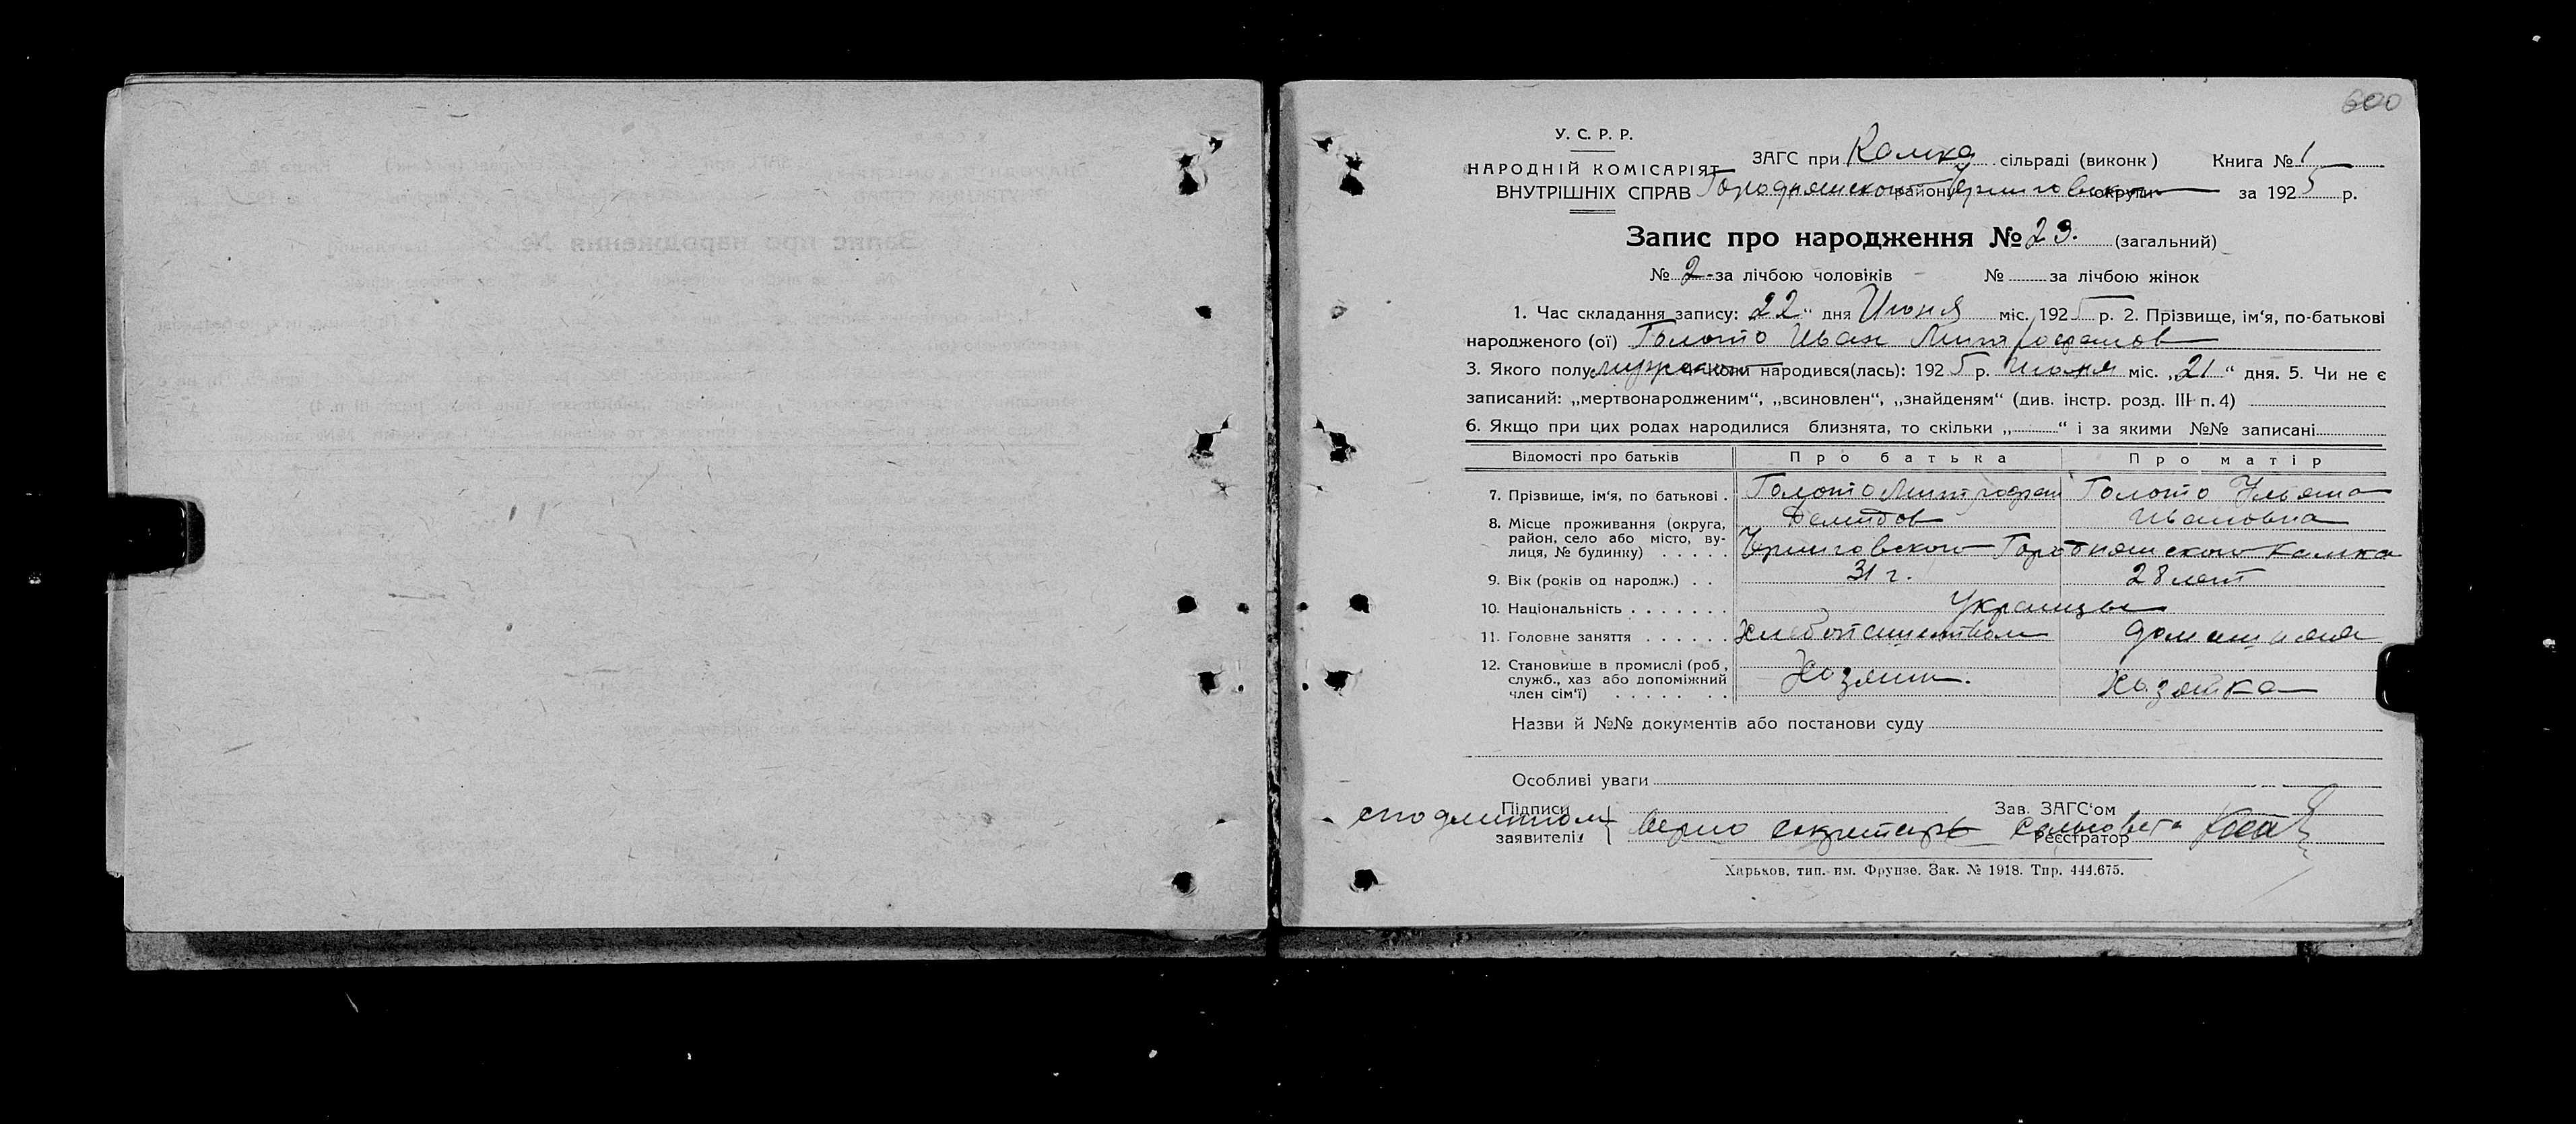 600
У. С. Р. Р.
НАРОДНІЙ КОМІСАРІЯТ
ВНУТРІШНІХ СПРАВ
ЗАГС при Камка сільраді (виконк) Книга № 1
Городнянского району Черниговской округи за 1925 р.
Запис про народження № 23. (загальний)
№ 2 за лічбою чоловіків № за лічбою жінок
1. Час складання запису: 22 " дня Июня міс. 1925 р. 2. Прізвище, ім'я, по-батькові
народженого (ої) Голото Иван Митрофанов
3. Якого полу мужское народився(лась): 1925 р. Июня міс. „21" дня. 5. Чи не є
записаний: „мертвонародженим", „всиновлен", „знайденям" (див. інстр. розд. III п. 4)
6. Якщо при цих родах народилися близнята, то скільки „ " і за якими №№ записані
Відомості про батьків Про батька Про матір
7. Прізвище, ім'я, по батькові . Голото Митрофан Демидов Голото Ульяна Ивановна
8. Місце проживання (округа, район, село або місто, вулиця, № будинку) . . . . . Черниговского Городнянского Камка
9. Вік (років од народж.) . . 31 г. 28 лет
10. Національність . . . . . . . Украинцы
11. Головне заняття . . . . . . Хлебопашеством домашняя
12. Становище в промислі (роб, служб., хаз або допоміжний член сім'ї) . . . . . . . Хозяин. Хозяйка
Назви й №№ документів або постанови суду
Особливі уваги
Підписи Зав. ЗАГС'ом
с подлинном верно секретарь сельсовета
заявителів Реєстратор
Харьков, тип. им. Фрунзе. Зак. № 1918. Тир. 444.675.